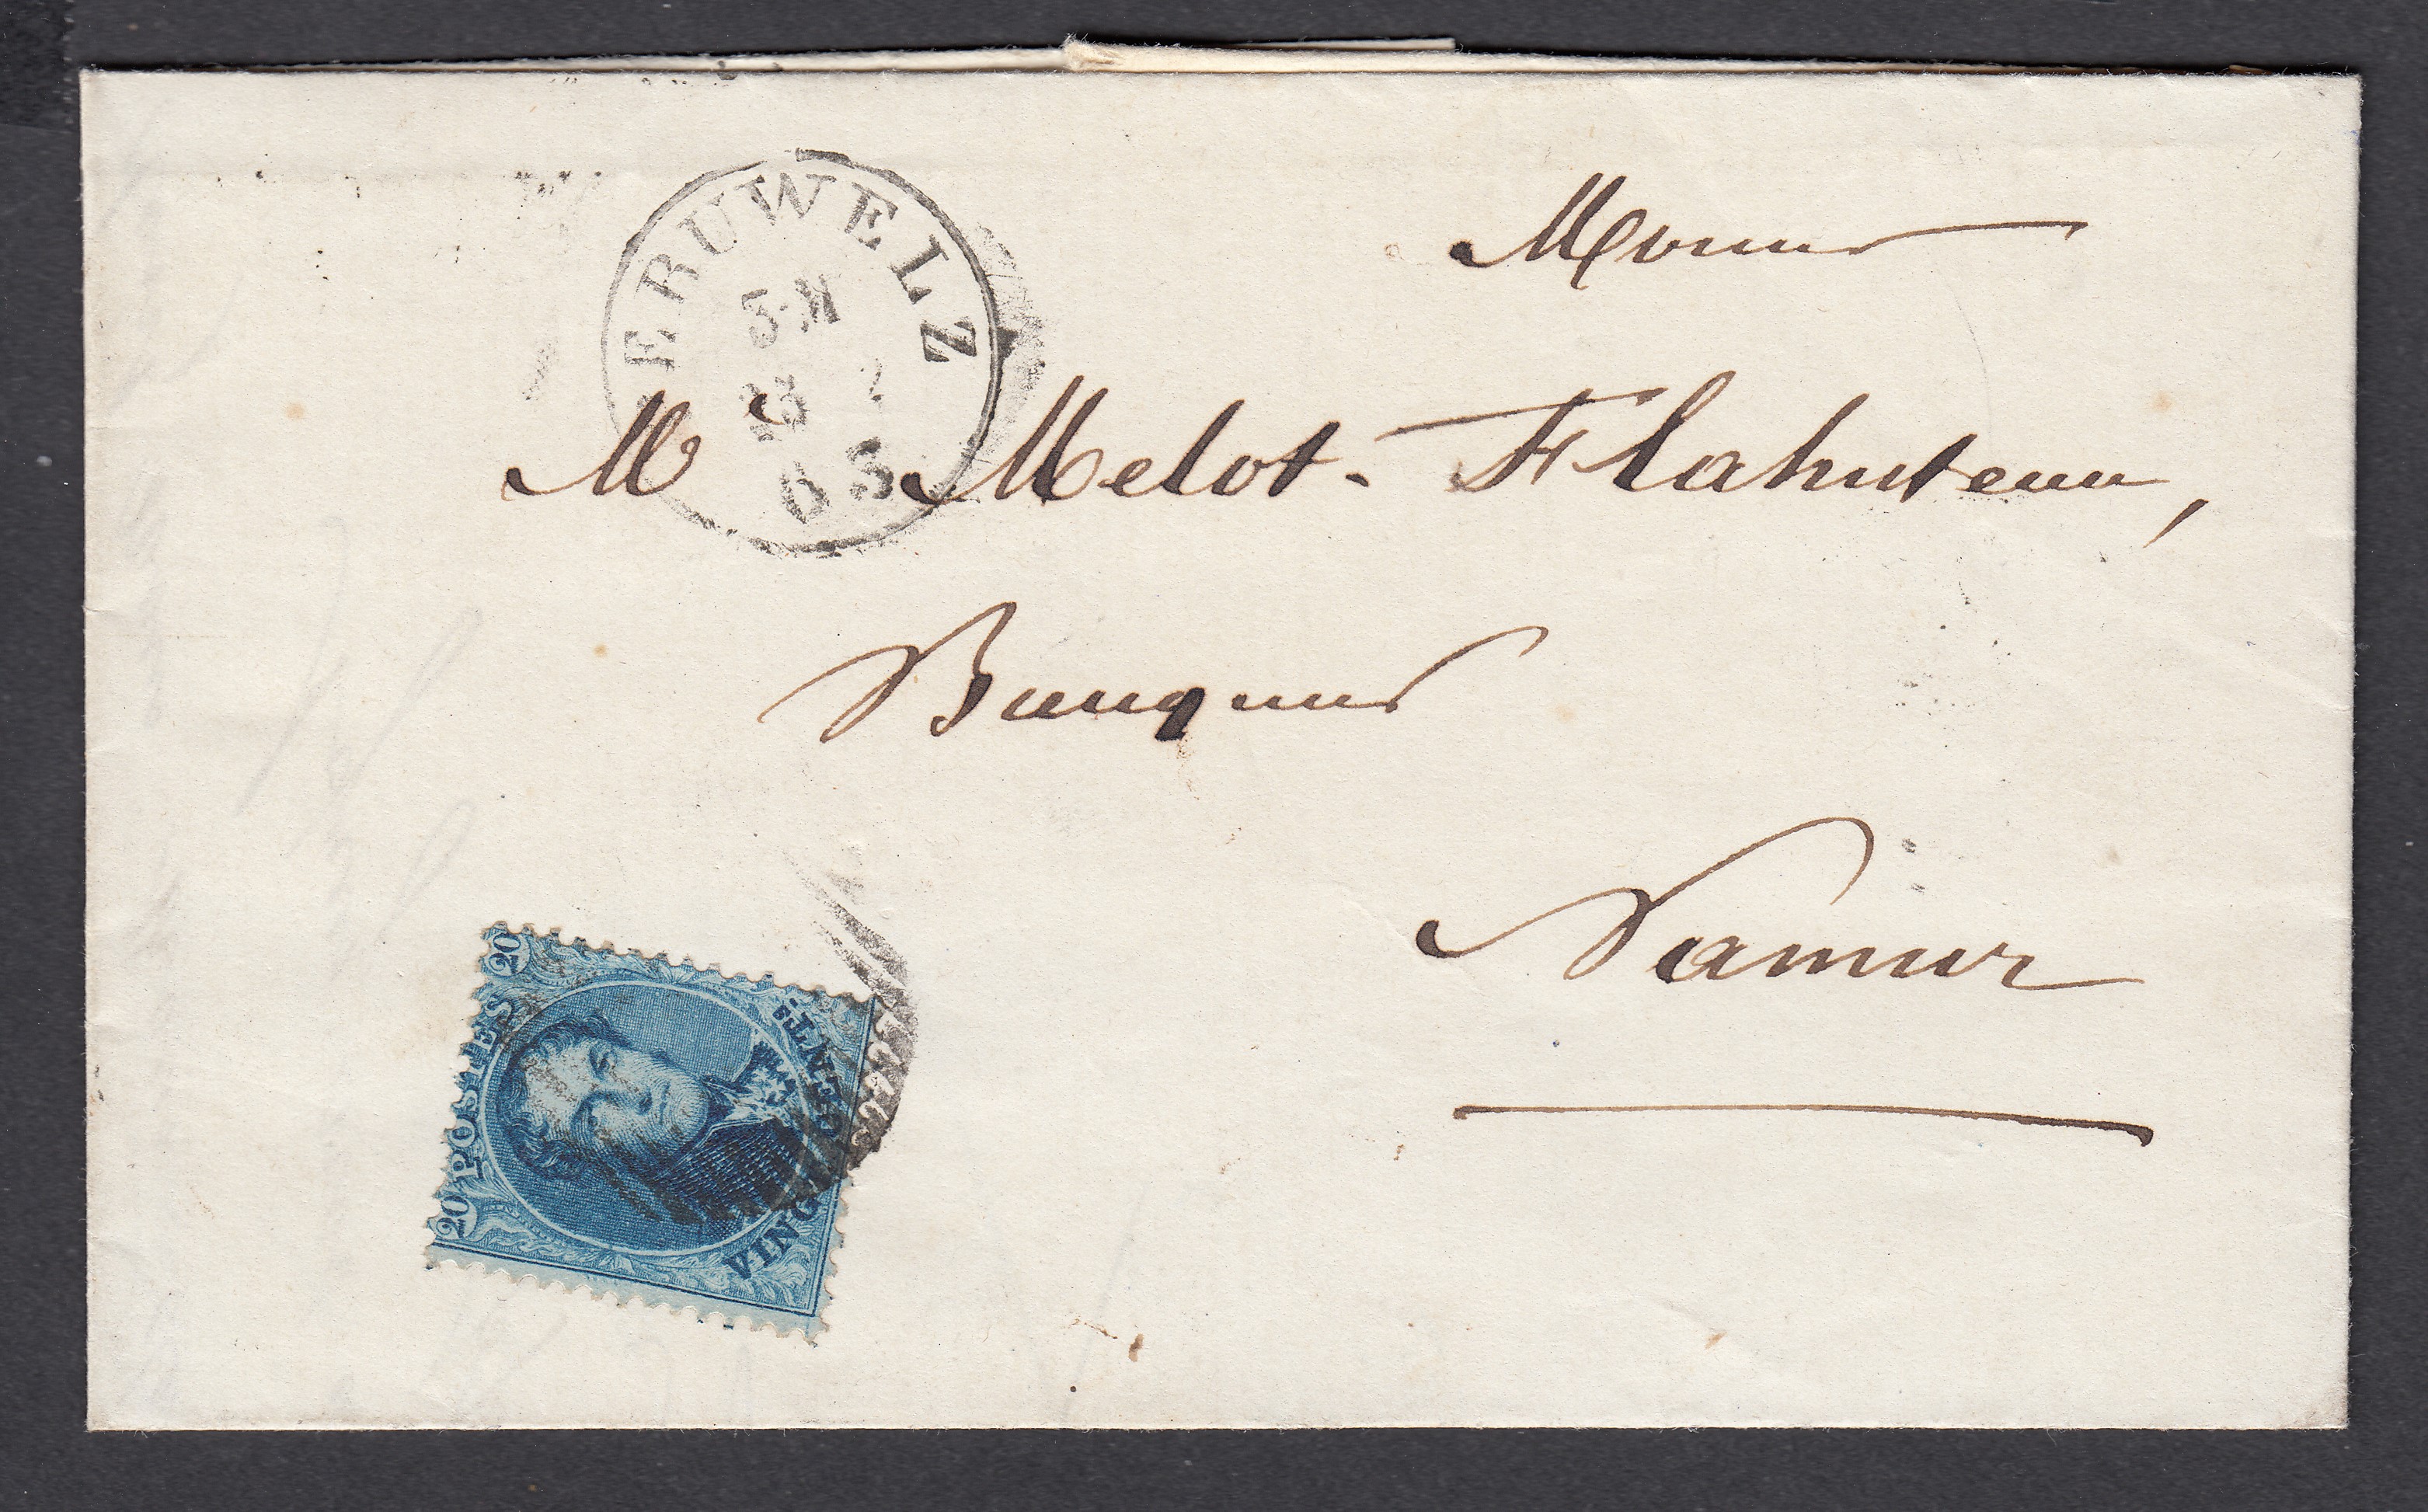 ERUWELZ
5-M
13 2
65
Monsieur
Mr Melot-Flahuteau,
Banquier
Namur
20 POSTES 20
VINGT CENTS